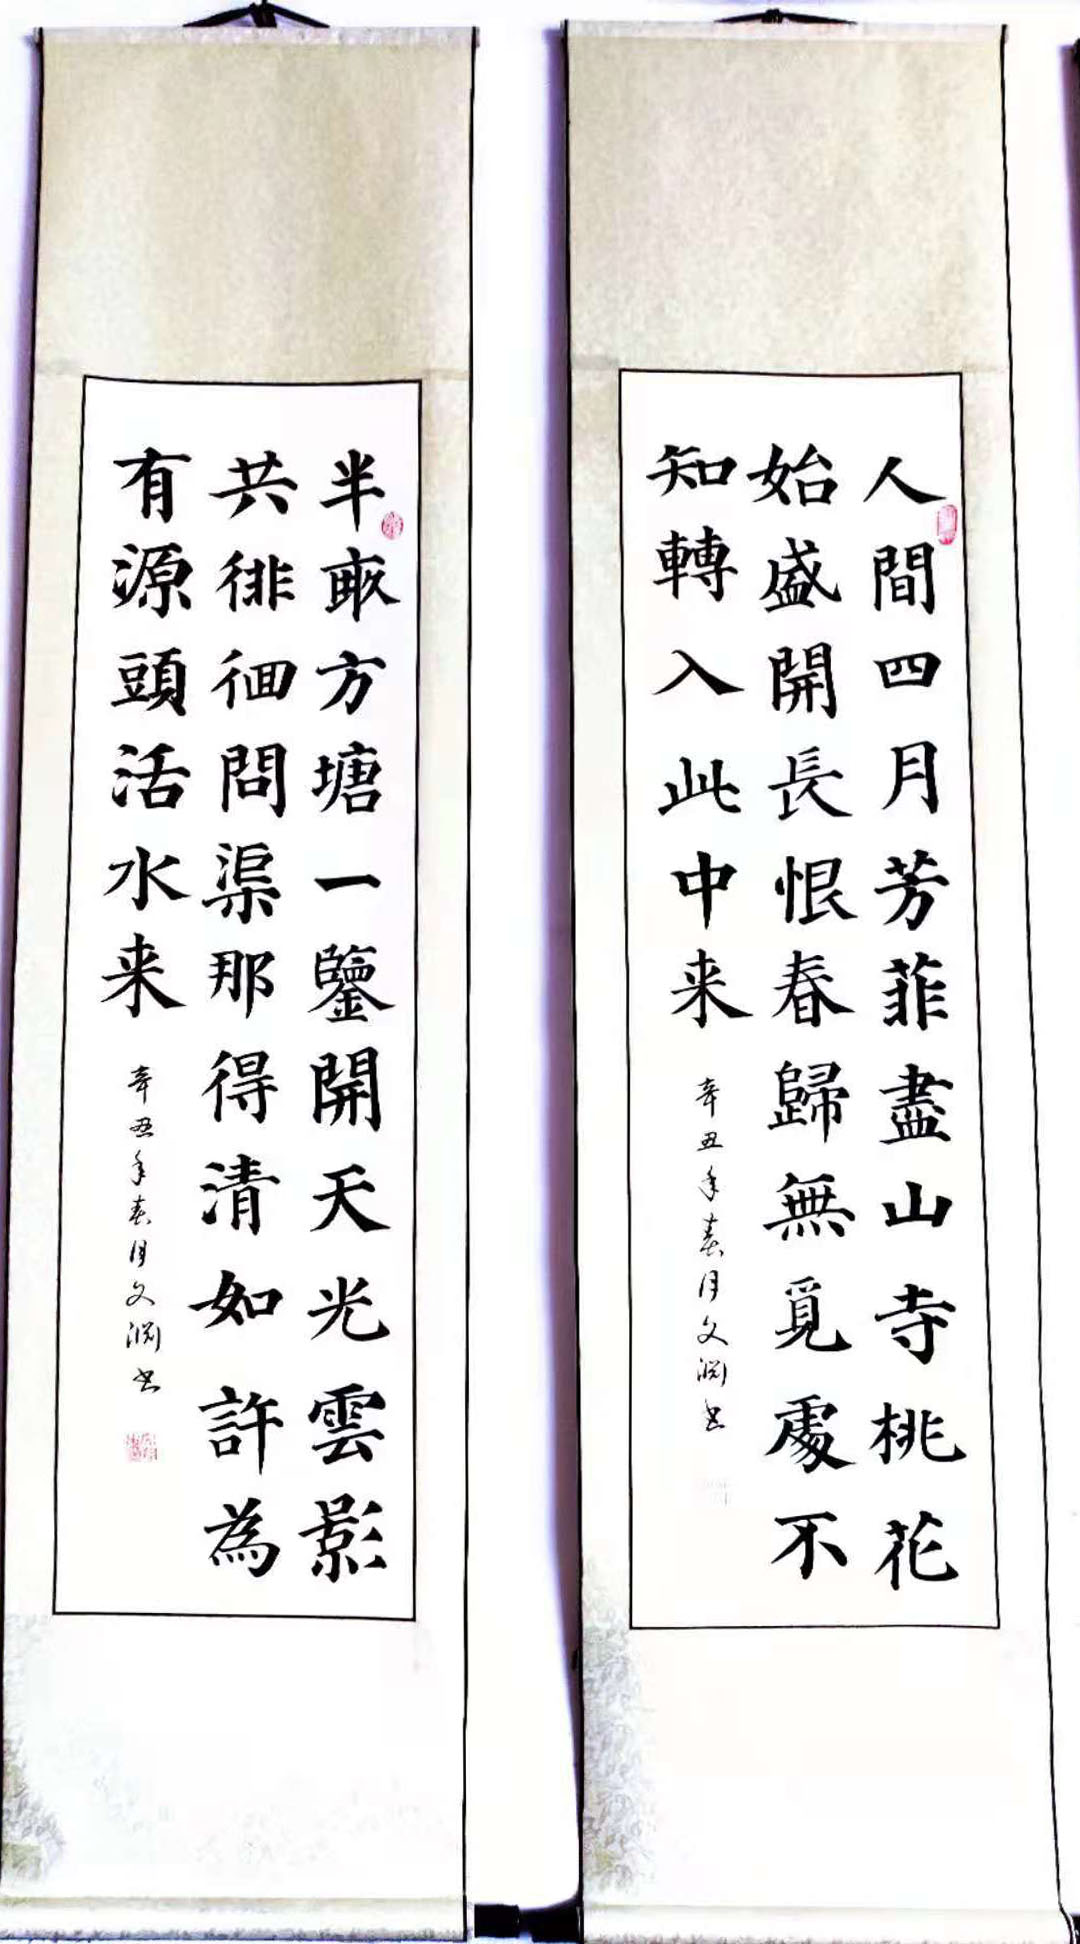 人間四月芳菲盡山寺桃花
始盛開長恨春歸無覓處不
知轉入此中来
辛丑年春月文淵书
半畝方塘一鑒開天光雲影
共徘徊問渠那得清如許為
有源頭活水来
辛丑年春月文淵书